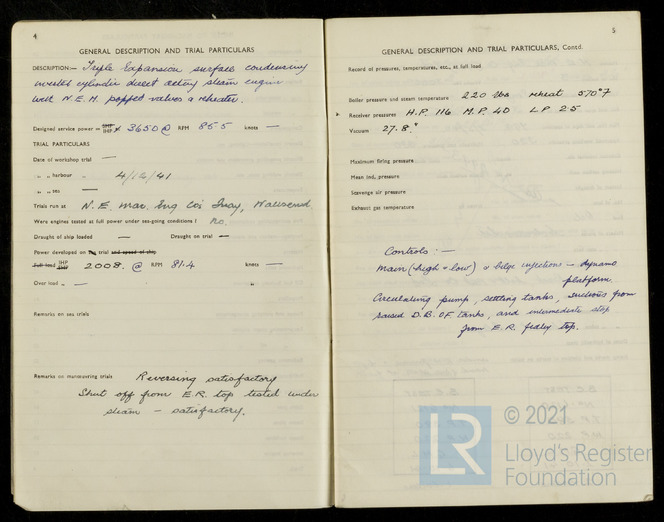 4
GENERAL DESCRIPTION AND TRIAL PARTICULARS
DESCRIPTION:— Triple Expansion surface condensing
inverted cylinder direct acting steam engine
with N.E.M. poppet valves & reheater.
Designed service power = SHP IHP 3650 @ RPM 85.5 knots —
TRIAL PARTICULARS
Date of workshop trial —
„ „ harbour „ 4/12/41
„ „ sea —
Trials run at N.E. Mar. Eng Co: Quay, Wallsend
Were engines tested at full power under sea-going conditions? No.
Draught of ship loaded — Draught on trial —
Power developed on trial and speed of ship
Full load IHP SHP 2008. @ RPM 81.4 knots —
Over load „ — „
Remarks on sea trials
Remarks on manœuvring trials Reversing satisfactory
Shut off from E.R. top tested under
steam — satisfactory.
5
GENERAL DESCRIPTION AND TRIAL PARTICULARS, Contd.
Record of pressures, temperatures, etc., at full load
Boiler pressure and steam temperature 220 lbs reheat 570°F
Receiver pressures H.P. 116 M.P. 40 L.P. 2.5
Vacuum 27.8"
Maximum firing pressure
Mean ind. pressure
Scavenge air pressure
Exhaust gas temperature
Controls:—
Main (high & low) & bilge injections — dynamo
platform.
Circulating pump, settling tanks, suctions from
raised D.B. O.F. tanks, and intermediate stop
from E.R. fidley top.
LR
© 2021
Lloyd's Register
Foundation